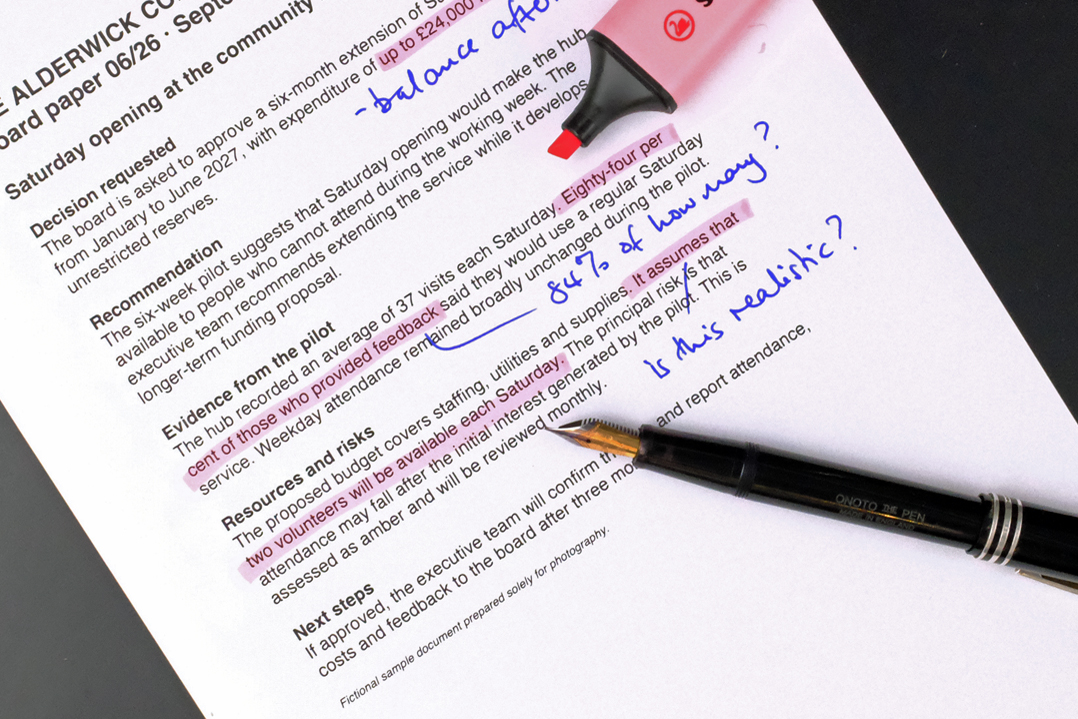 E ALDERWICK CO
oard paper 06/26 · Sept
Saturday opening at the community
Decision requested
The board is asked to approve a six-month extension of
from January to June 2027, with expenditure of up to £24,000
unrestricted reserves.
- balance after
Recommendation
The six-week pilot suggests that Saturday opening would make the hub
available to people who cannot attend during the working week. The
executive team recommends extending the service while it develops
longer-term funding proposal.
Evidence from the pilot
The hub recorded an average of 37 visits each Saturday. Eighty-four per
cent of those who provided feedback said they would use a regular Saturday
service. Weekday attendance remained broadly unchanged during the pilot.
84% of how many?
Resources and risks
The proposed budget covers staffing, utilities and supplies. It assumes that
two volunteers will be available each Saturday. The principal risk is that
attendance may fall after the initial interest generated by the pilot. This is
assessed as amber and will be reviewed monthly.
is this realistic?
Next steps
If approved, the executive team will confirm and report attendance,
costs and feedback to the board after three
Fictional sample document prepared solely for photography.
ONOTO THE PEN
MADE IN ENGLAND